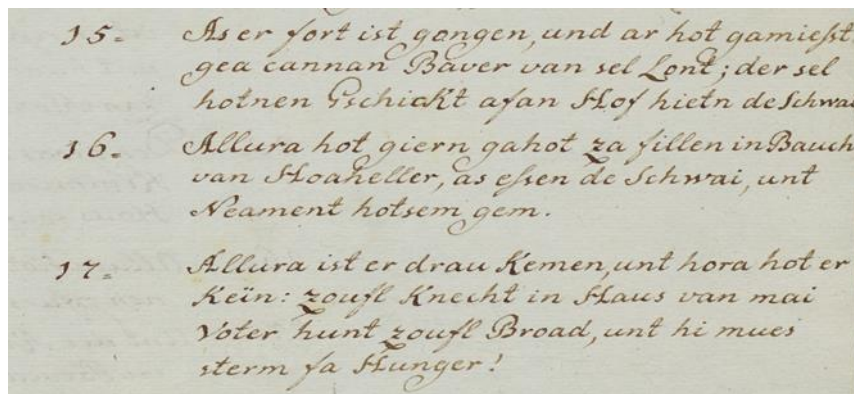 15. As er fort ist gongen, und ar hot gamiesst
gea cannan Baver van sel Lont; der sel
hotnen Gschickt afan Hof hietn de Schwai
16. Allura hot giern gahot za fillen in Bauch
van Hoaheller, as essen de Schwai, unt
Neament hotsem gem.
17. Allura ist er drau Kemen, unt hora hot er
Keïn: zoufl Knecht in Haus van mai
Voter hunt zoufl Broad, unt hi mues
sterm fa Hunger!